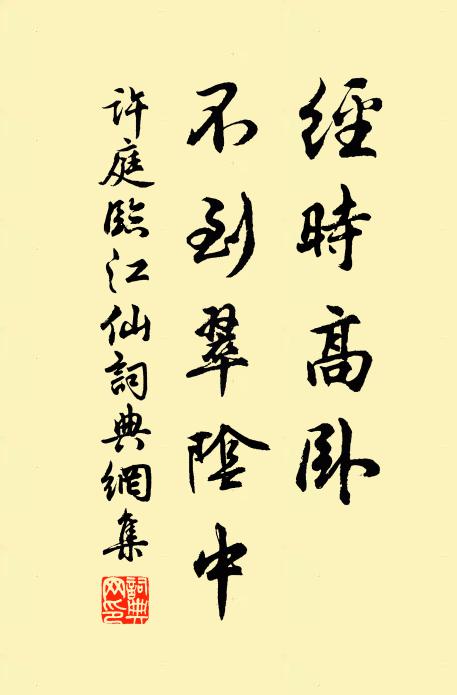 經時高臥
不到翠陰中
許庭臨江仙詞典網集
詞典網印